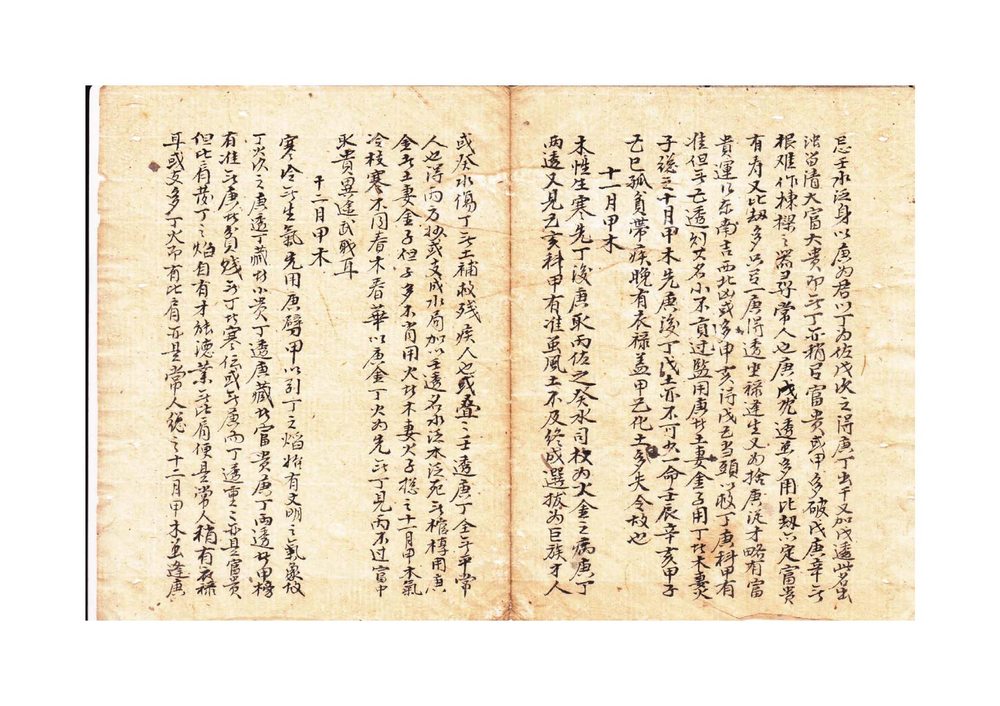 忌壬水泛身以庚为君以丁为佐戊次之得庚丁出干又加戊透此名出
浊留清大富大贵即无丁亦稍有富贵或甲多破戊庚辛无
根难作栋樑之器寻常人也庚戊
有寿又比刼多只一庚得透坐禄逢生又为捨庚從才略有富
貴運以东南吉西北凶或多申亥得戊己当頭以救丁庚科甲有
准但无己透刘其名小不貢过監用庚者土妻金子用丁者木妻火
子總之十月甲木先庚後丁戊土亦不可少一命壬辰辛亥甲子
己巳孤貧帶疾晚有衣禄盖甲己化土多失令故也
十一月甲木
木性生寒先丁後庚取丙佐之癸水司权为火金之病庚丁
两透又見己亥科甲有准虽風土不及终成選拔为巨族才人
或癸水傷丁无土補救残疾人也或叠之壬透庚丁全无平常
人也得丙方妙或支成水局加以壬透名水泛木泛死无棺槨用庚
金者土妻金子但子多不肖用火者木妻火子總之十一月甲木氣
冷枝寒不同春木春華以庚金丁火为先无丁見丙不过富中
取貴異途武戢耳
十二月甲木
寒冷无生氣先用庚劈甲以引丁之焰 有文明之氣象故
丁火次之庚透丁藏者小贵丁透庚藏者富貴庚丁两透者甲榜
有准无庚者貧贱无丁者寒佢或无庚而丁透重之亦且富贵
但比肩发丁之焰自有才能德業无比肩便是常人稍有衣禄
耳或支多丁火即有比肩亦是常人總之十二月甲木虽逢庚